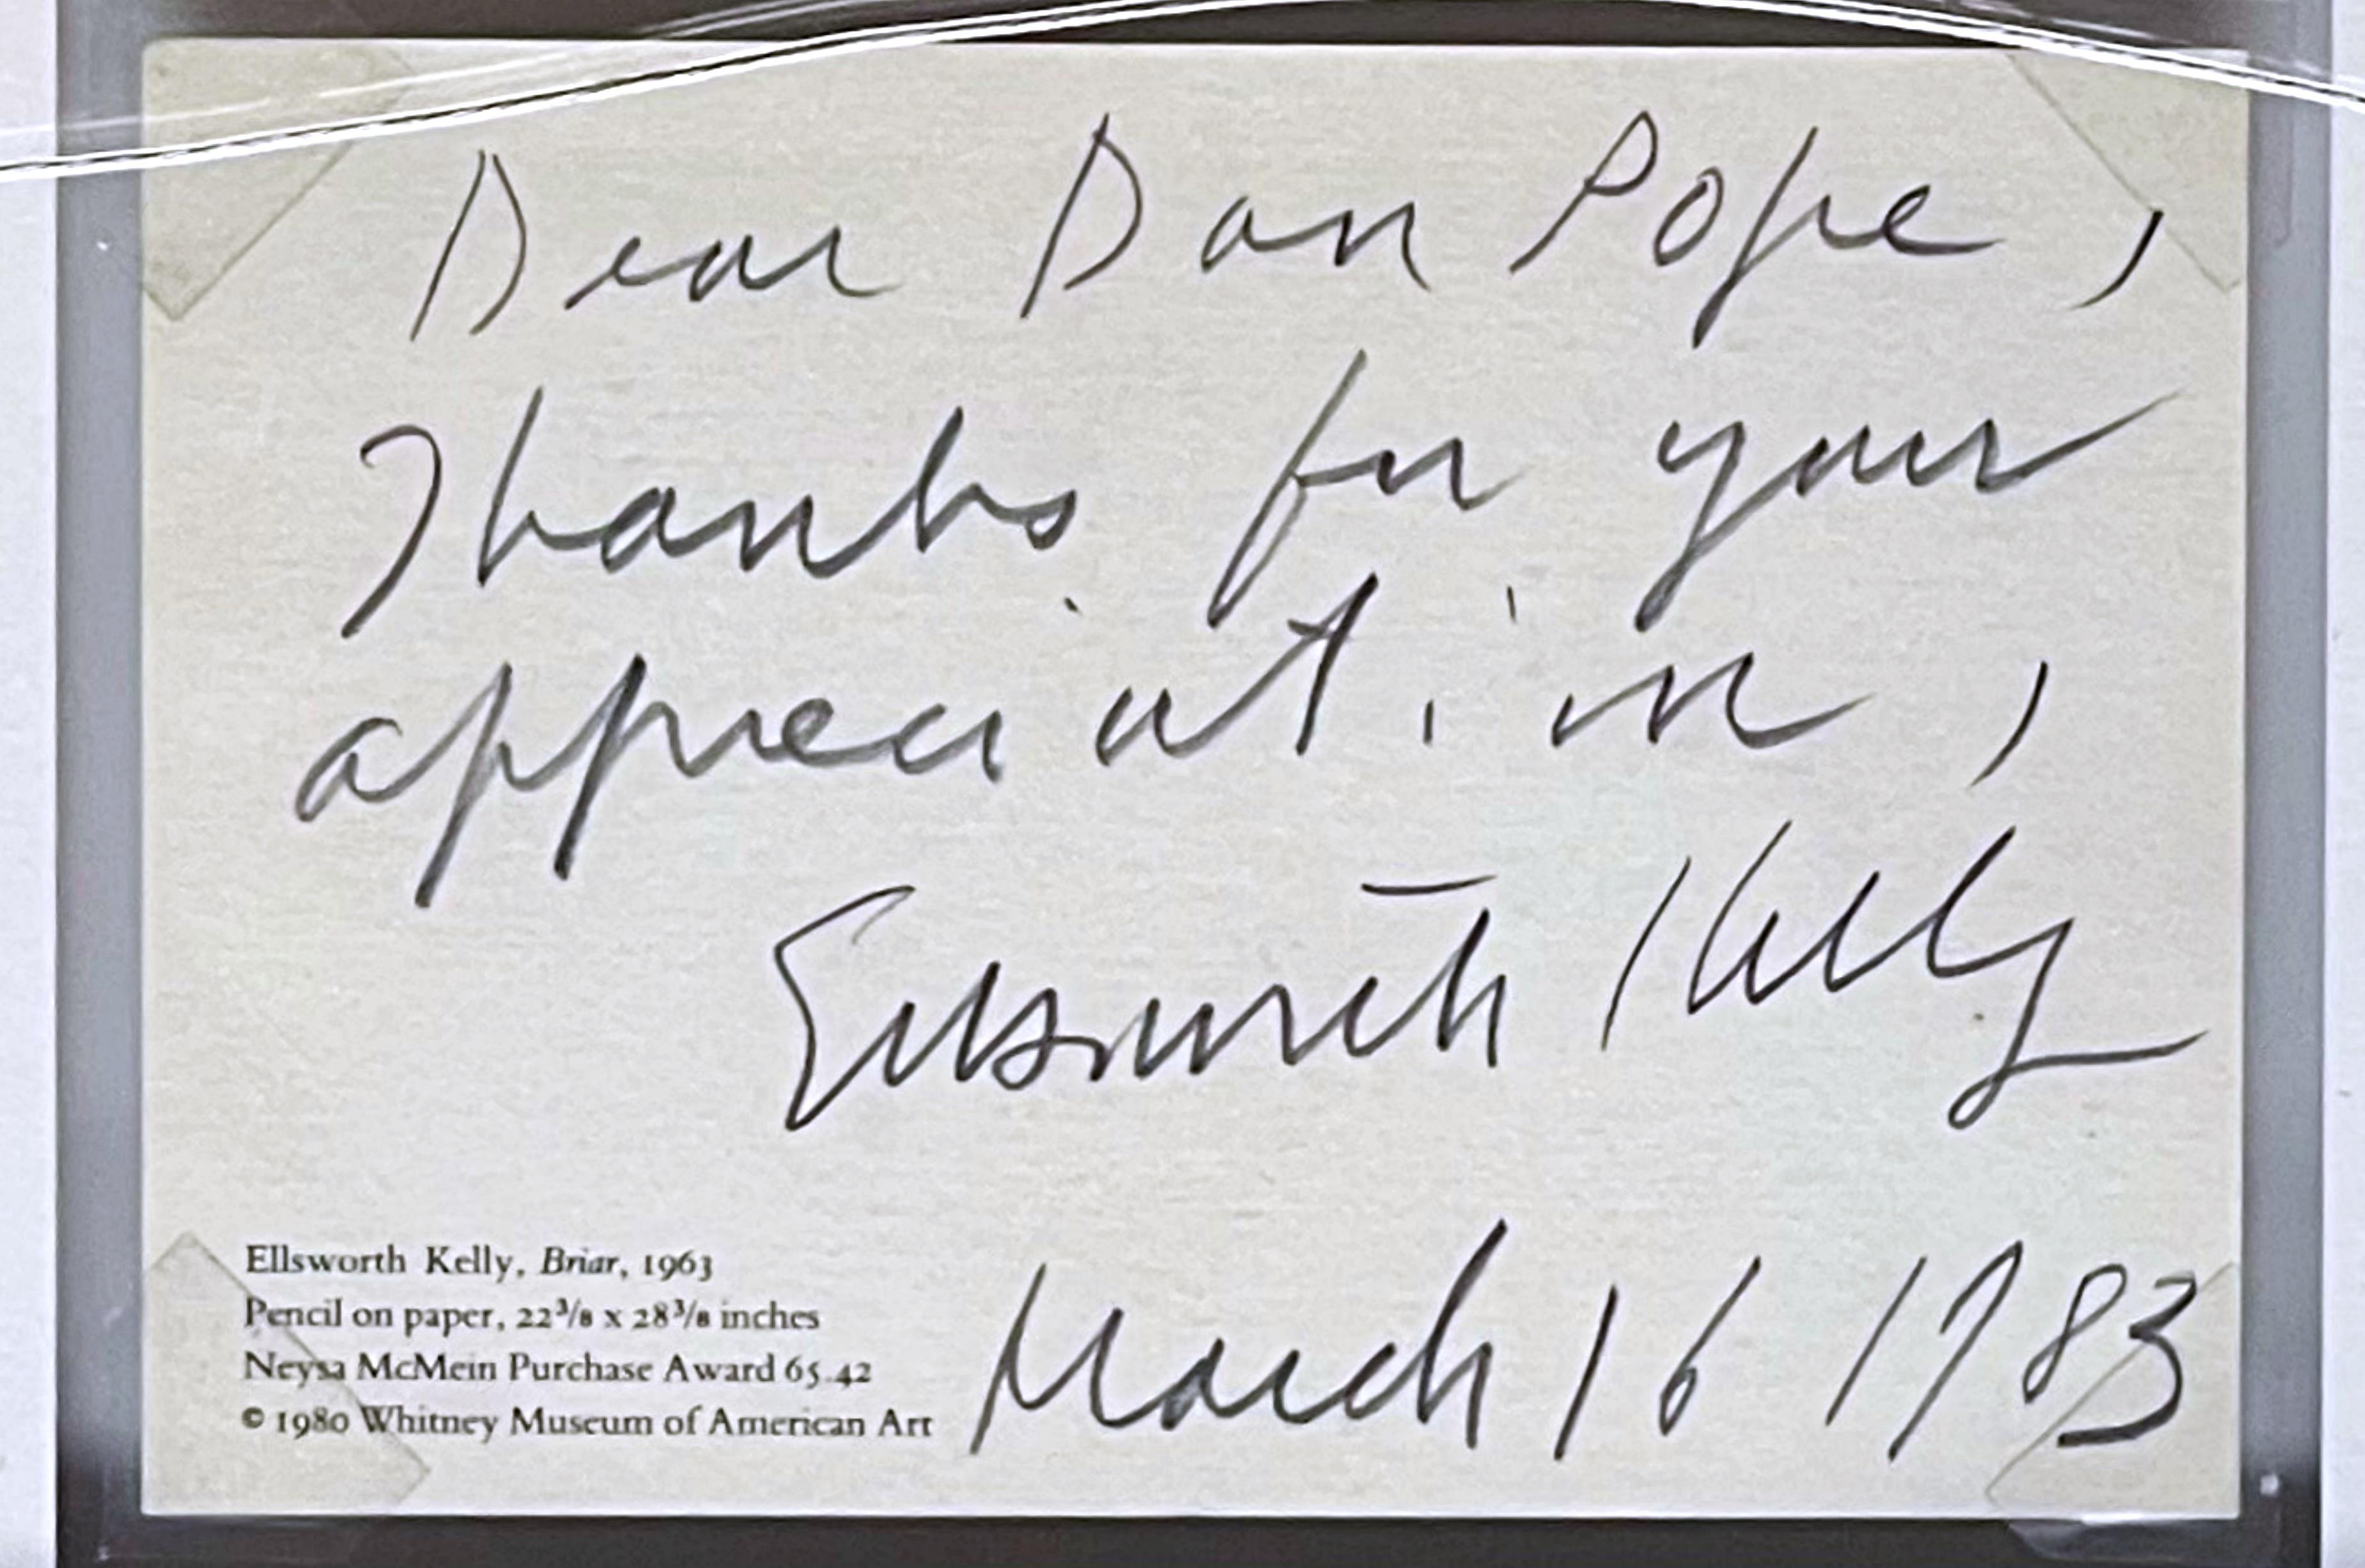 Dear Dan Pope,
Thanks for your
appreciation,
Ellsworth Kelly
Ellsworth Kelly, Briar, 1963
Pencil on paper, 22 3/8 x 28 3/8 inches
Neysa McMein Purchase Award 65.42
© 1980 Whitney Museum of American Art
March 16 1983